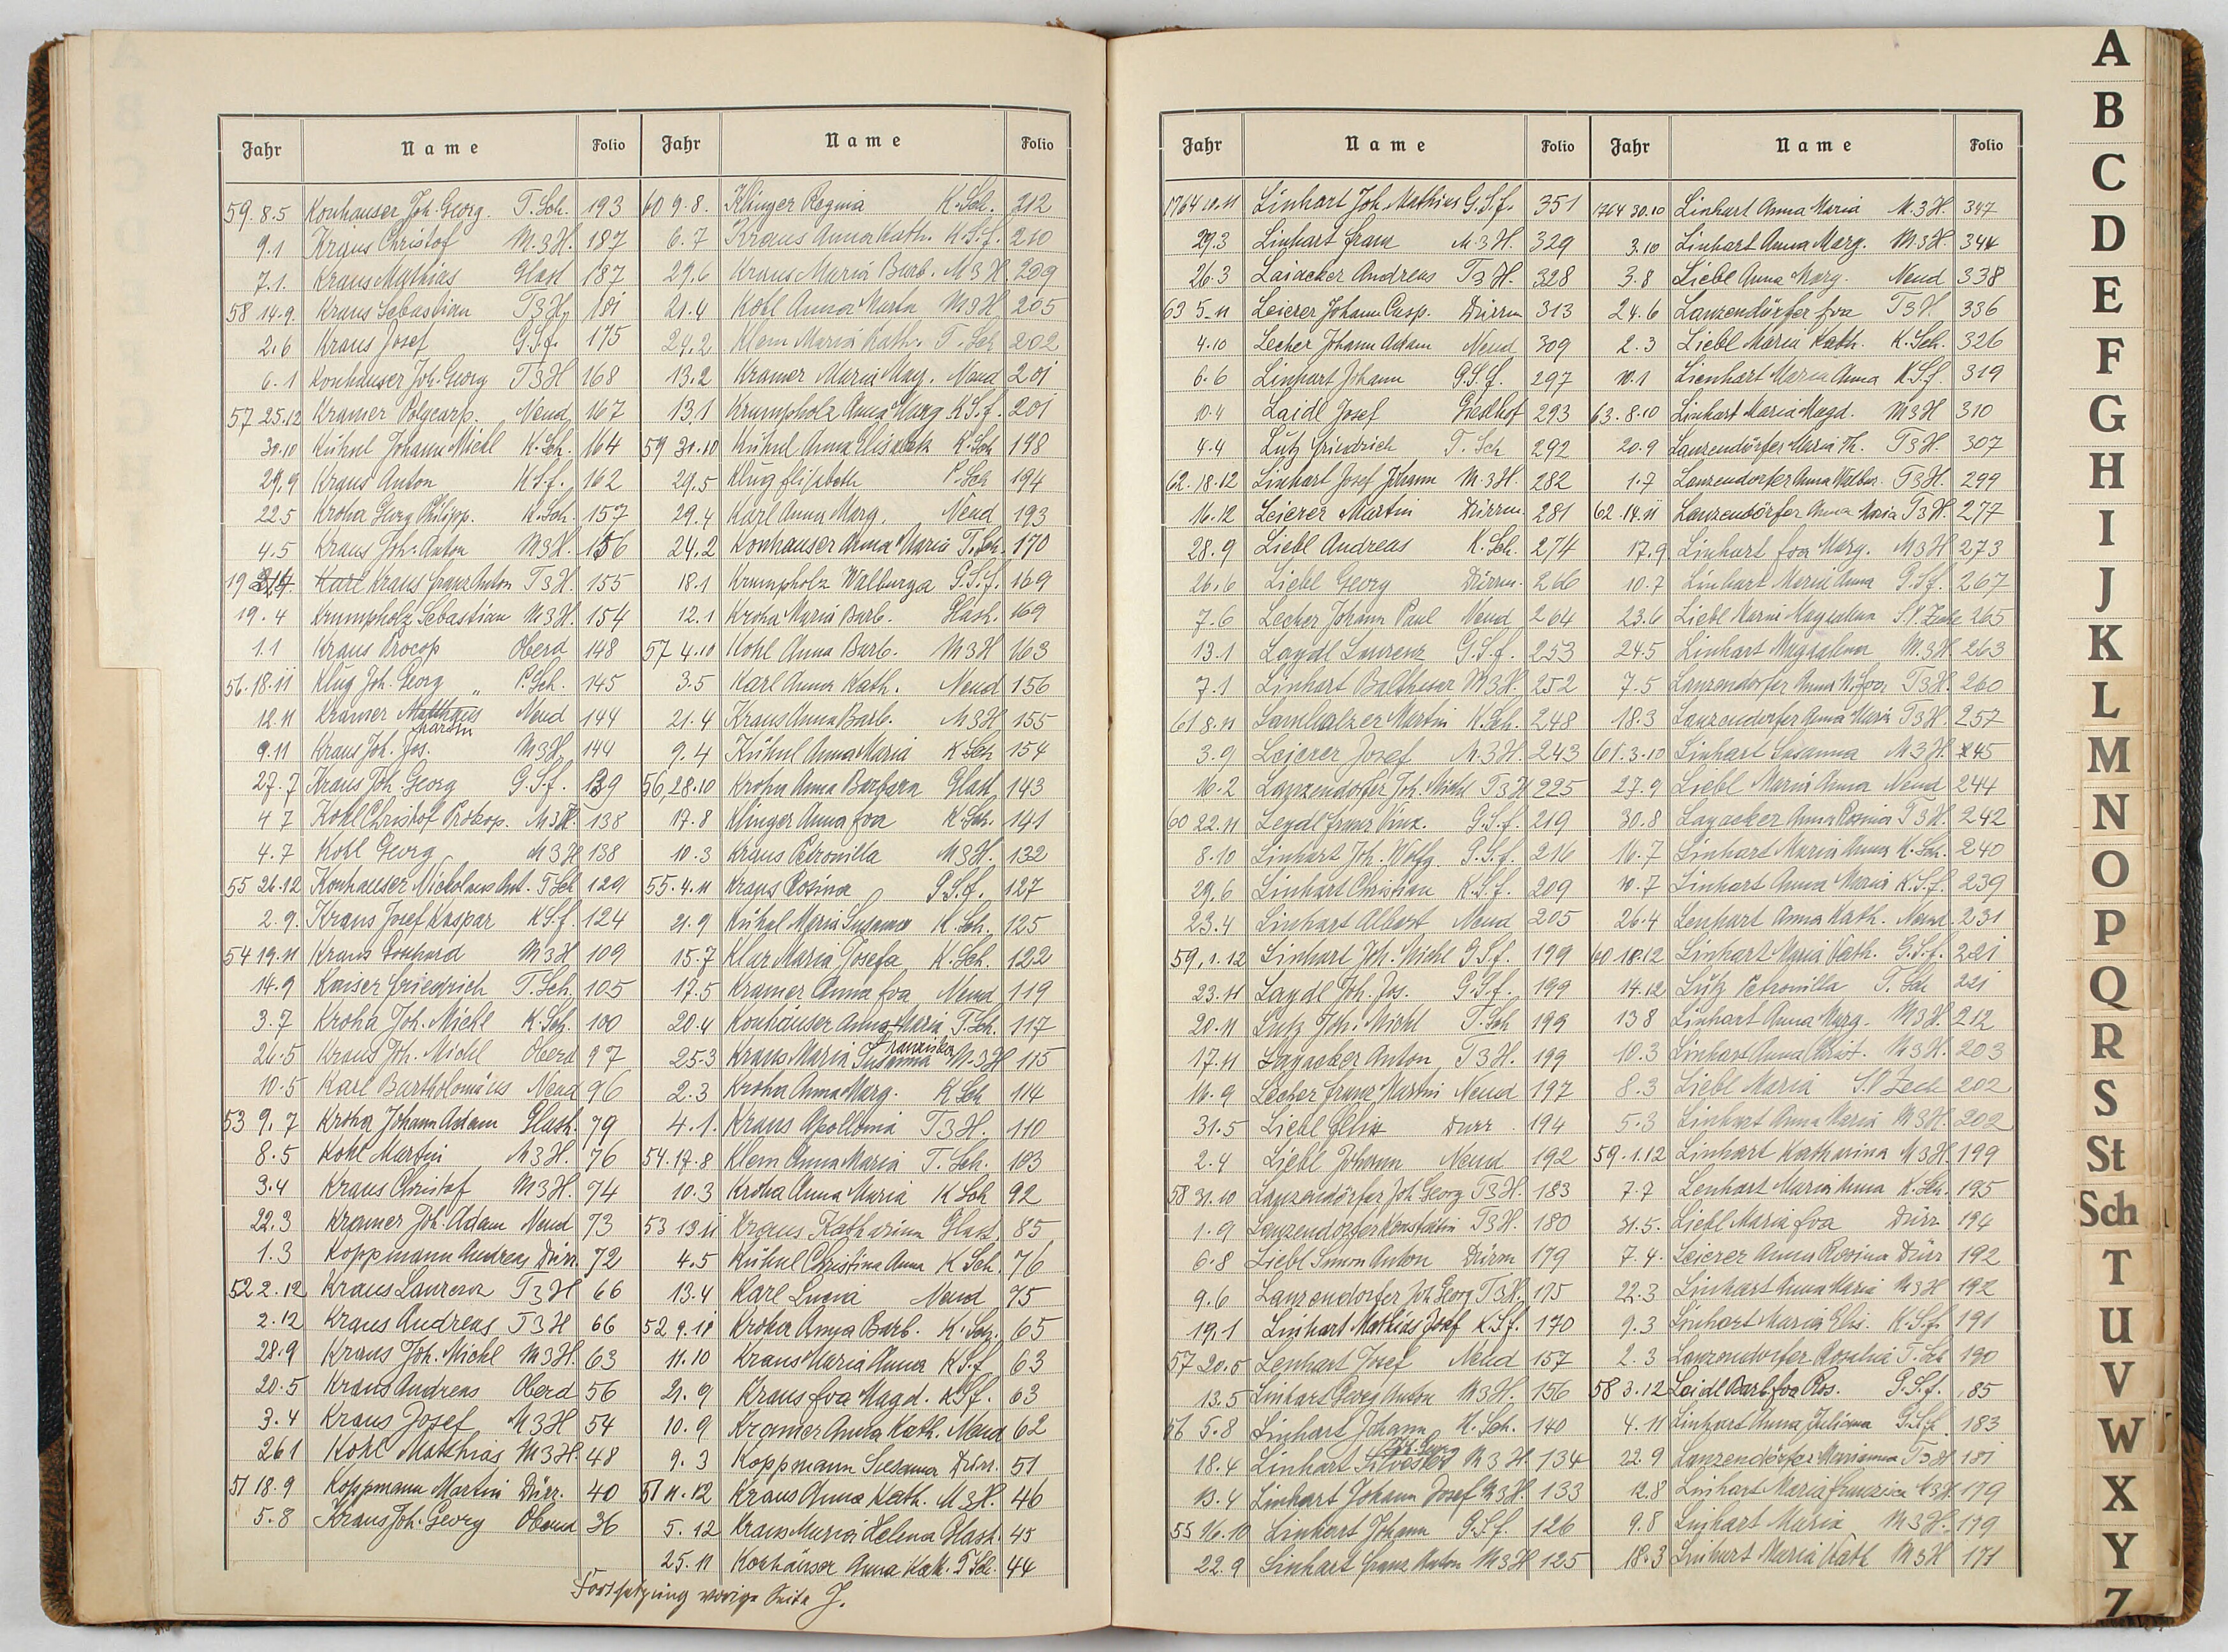 Jahr Name Folio
59. 8.5 Konhauser Joh. Georg. T. Sch. 193
9.1 Kraus Christof M.3H. 187
7.1. Kraus Mathias Glast 187
58 14.9. Kraus Sebastian T3H. 181
2.6 Kraus Josef G.S.f. 175
6.1 Konhauser Joh. Georg T3H 168
57 25.12 Kramer Polycarp. Neud 167
30.10 Kühnl Johann Michl K. Sch. 164
29.9 Kraus Anton K.S.f. 162
22.5 Kroha Georg Philipp. K. Sch. 157
4.5 Kraus Joh. Anton M3H. 156
19 Karl Kraus Franz Anton T3H. 155
19.4 Krumpholz Sebastian M3H. 154
1.1 Kraus Procop Oberd 148
56. 18.11 Klug Joh. Georg " P. Sch. 145
12.11 Kramer Matthäus Martin Neud 144
9.11 Kraus Joh. Jos. M3H. 144
27.7 Kraus Joh. Georg G.S.f. 139
4 7 Kohl Christof Prokop. M3H. 138
4.7 Kohl Georg M3H 138
55 26.12 Konhauser Nickolaus Ant. T Sch 129
2.9. Kraus Josef Kaspar K S.f. 124
54 19.11 Kraus Leonhard M3H 109
14.9 Kaiser Friedrich T. Sch. 105
3.7 Kroha Joh. Michl K. Sch. 100
26.5 Kraus Joh. Michl Oberd 97
10.5 Karl Bartholomäus Neud 96
53 9.7 Kroha Johann Adam Glash. 79
8.5 Kohl Martin M3H. 76
3.4 Kraus Christof M3H. 74
22.3 Kramer Joh. Adam Neud 73
1.3 Koppmann Andreas Dürr. 72
52 2.12 Kraus Laurenz T3H 66
2.12 Kraus Andreas T3H 66
28.9 Kraus Joh. Michl M3H. 63
20.5 Kraus Andreas Oberd 56
3.4 Kraus Josef M3H 54
26.1 Kohl Matthias M3H. 48
51 18.9 Koppmann Martin Dürr. 40
5.8 Kraus Joh. Georg Oberd 36
Jahr Name Folio
60 9.8. Klinger Regina K. Sch. 212
6.7 Kraus Anna Kath. K.S.f. 210
29.6 Kraus Maria Barb. M3H. 209
21.4 Kohl Anna Maria M3H 205
24.2 Klem Maria Kath. T. Sch 202
13.2 Kramer Maria Mag. Neud 201
13.1 Krumpholz Anna Marg K.S.f. 201
59 30.10 Kühnl Anna Elisabeth K. Sch 198
29.5 Klug Elisabeth P. Sch 194
29.4 Karl Anna Marg. Neud 193
24.2 Konhauser Anna Maria T. Sch. 170
18.1 Krumpholz Walburga G.S.f. 169
12.1 Kroha Maria Barb. Glash. 169
57 4.10 Kohl Anna Barb. M3H 163
3.5 Karl Anna Kath. Neud 156
21.4 Kraus Anna Barb. M3H 155
9.4 Kühnl Anna Maria K Sch 154
56, 28.10 Kroha Anna Barbara Glash 143
17.8 Klinger Anna Eva K. Sch. 141
10.3 Kraus Petronilla M3H. 132
55. 4.11 Kraus Rosina G.S.f. 127
21.9 Kühnl Maria Susanna K. Sch. 125
15.7 Klar Maria Josefa K. Sch. 122
17.5 Kramer Anna Eva Neud 119
20.4 Konhauser Anna Maria T. Sch. 117
25.3 Kraus Maria Susanna Franziska M.3H 115
2.3 Kroha Anna Marg. K Sch 114
4.1. Kraus Apollonia T3H. 110
54. 17.8 Klem Anna Maria T. Sch. 103
10.3 Kroha Anna Maria K Sch 92
53 13.11 Kraus Katharina Glast. 85
4.5 Kühnl Christina Anna K Sch. 76
13.4 Karl Lucia Neud 75
52 9.11 Kroha Anna Barb. K. Sch. 65
11.10 Kraus Maria Anna K S.f. 63
21.9 Kraus Eva Magd. K.S.f. 63
10.9 Kramer Anna Kath. Neud 62
9.3 Koppmann Susanna Dürr. 51
51 11.12 Kraus Anna Kath. M3H. 46
5.12 Kraus Maria Helena Glash. 45
25.11 Konhäuser Anna Kath. T Sch. 44
Fortsetzung vorige Seite J.
Jahr Name Folio
1764 10.11 Linhart Joh. Mathias G.S.f. 351
29.3 Linhart Franz M3H. 329
26.3 Laiacker Andreas T3H. 328
63 5.11 Leierer Johann Casp. Dürrm 313
4.10 Lecher Johann Adam Neud 309
6.6 Linhart Johann G.S.f. 297
10.4 Laidl Josef 293
4.4 Lutz Friedrich T. Sch 292
62. 18.12 Linhart Josef Johann M.3H. 282
16.12 Leierer Martin Dürrm. 281
28.9 Liebl Andreas K. Sch. 274
26.6 Liebl Georg Dürrm. 266
7.6 Lecher Johann Paul Neud 264
13.1 Laydl Laurenz G.S.f. 253
7.1 Linhart Balthasar M3H. 252
61 8.11 Lamhalzer Martin K. Sch. 248
3.9 Leierer Josef M.3H. 243
16.2 Lanzendörfer Joh. Michl T3H 225
60 22.11 Leydl Franz Vinz. G.S.f. 219
8.10 Linhart Joh. Wolfg. G.S.f. 216
29.6 Linhart Christian K.S.f. 209
23.4 Linhart Albert Neud 205
59, 1.12 Linhart Joh. Michl G.S.f. 199
23.11 Laydl Joh. Jos. G.S.f. 199
20.11 Lutz Joh. Michl T. Sch 199
17.11 Layacker Anton T3H. 199
16.9 Lecher Franz Martin Neud 197
31.5 Liebl Felix Dürr. 194
2.4 Liebl Johann Neud 192
58 31.10 Lanzendörfer Joh. Georg T3H. 183
1.9 Lanzendörfer Konstantin T3H. 180
6.8 Liebl Simon Anton Dürrn 179
9.6 Lanzendorfer Joh. Georg T3H. 175
19.1 Linhart Mathias Josef K.S.f. 170
57 20.5 Lenhart Josef Neud 157
13.5 Linhart Georg Anton M3H. 156
56 5.8 Linhart Johann K. Sch. 140
18.4 Linhart Silvester Joh. Georg M3H 134
13.4 Linhart Johann Josef M3H. 133
55 16.10 Linhart Johann G.S.f. 126
22.9 Linhart Franz Anton M3H 125
Jahr Name Folio
1764 30.10 Linhart Anna Maria M.3H. 347
3.10 Linhart Anna Marg. M3H. 344
3.8 Liebl Anna Marg. Neud 338
24.6 Lanzendörfer Eva T3H. 336
2.3 Liebl Maria Kath. K. Sch. 326
10.1 Lienhart Maria Anna K.S.f. 319
63. 8.10 Linhart Maria Magd. M3H 310
20.9 Lanzendörfer Maria Th. T3H. 307
1.7 Lanzendorfer Anna Walbur. T3H. 299
62. 14.11 Lanzendörfer Anna Maria T3H. 277
17.9 Linhart Eva Marg. M3H 273
10.7 Linhart Maria Anna G.S.f. 267
23.6 Liebl Maria Magdalena 265
24.5 Linhart Magdalena M.3H. 263
7.5 Lanzendorfer Anna M. Eva T3H. 260
18.3 Lanzendorfer Anna Maria T3H. 257
61. 3.10 Linhart Susanna M3H. 245
27.9 Liebl Maria Anna Neud 244
30.8 Layacker Anna Rosina T3H. 242
16.7 Linhart Maria Anna K. Sch. 240
10.7 Linhart Anna Maria K.S.f. 239
26.4 Lenhart Anna Kath. Neud. 231
60 18.12 Linhart Maria Kath. G.S.f. 221
14.12 Lutz Petronilla T. Sch 221
13 8 Linhart Anna Marg. M3H. 212
10.3 Linhart Anna Christ. M3H. 203
8.3 Liebl Maria S.P. Zech 202
5.3 Linhart Anna Maria M3H. 202
59. 1.12 Linhart Katharina M3H 199
7.7 Lenhart Maria Anna K. Sch. 195
31.5. Liebl Maria Eva Dürr 194
7.4. Leierer Anna Rosina Dürr 192
22.3 Linhart Anna Maria M3H 192
9.3 Linhart Maria Elis. K.S.f. 191
2.3 Lanzendorfer Rosalia T. Sch 190
58 3.12 Laidl Barb. Eva Ros. G.S.f. 185
4.11 Linhart Anna Juliana G.S.f. 183
22.9 Lanzendörfer Marianna T3H 181
12.8 Linhart Maria Franziska M3H. 179
9.8 Linhart Maria M3H. 179
18.3 Linhart Maria Kath M3H 171
A
B
C
D
E
F
G
H
I
J
K
L
M
N
O
P
Q
R
S
St
Sch
T
U
V
W
X
Y
Z